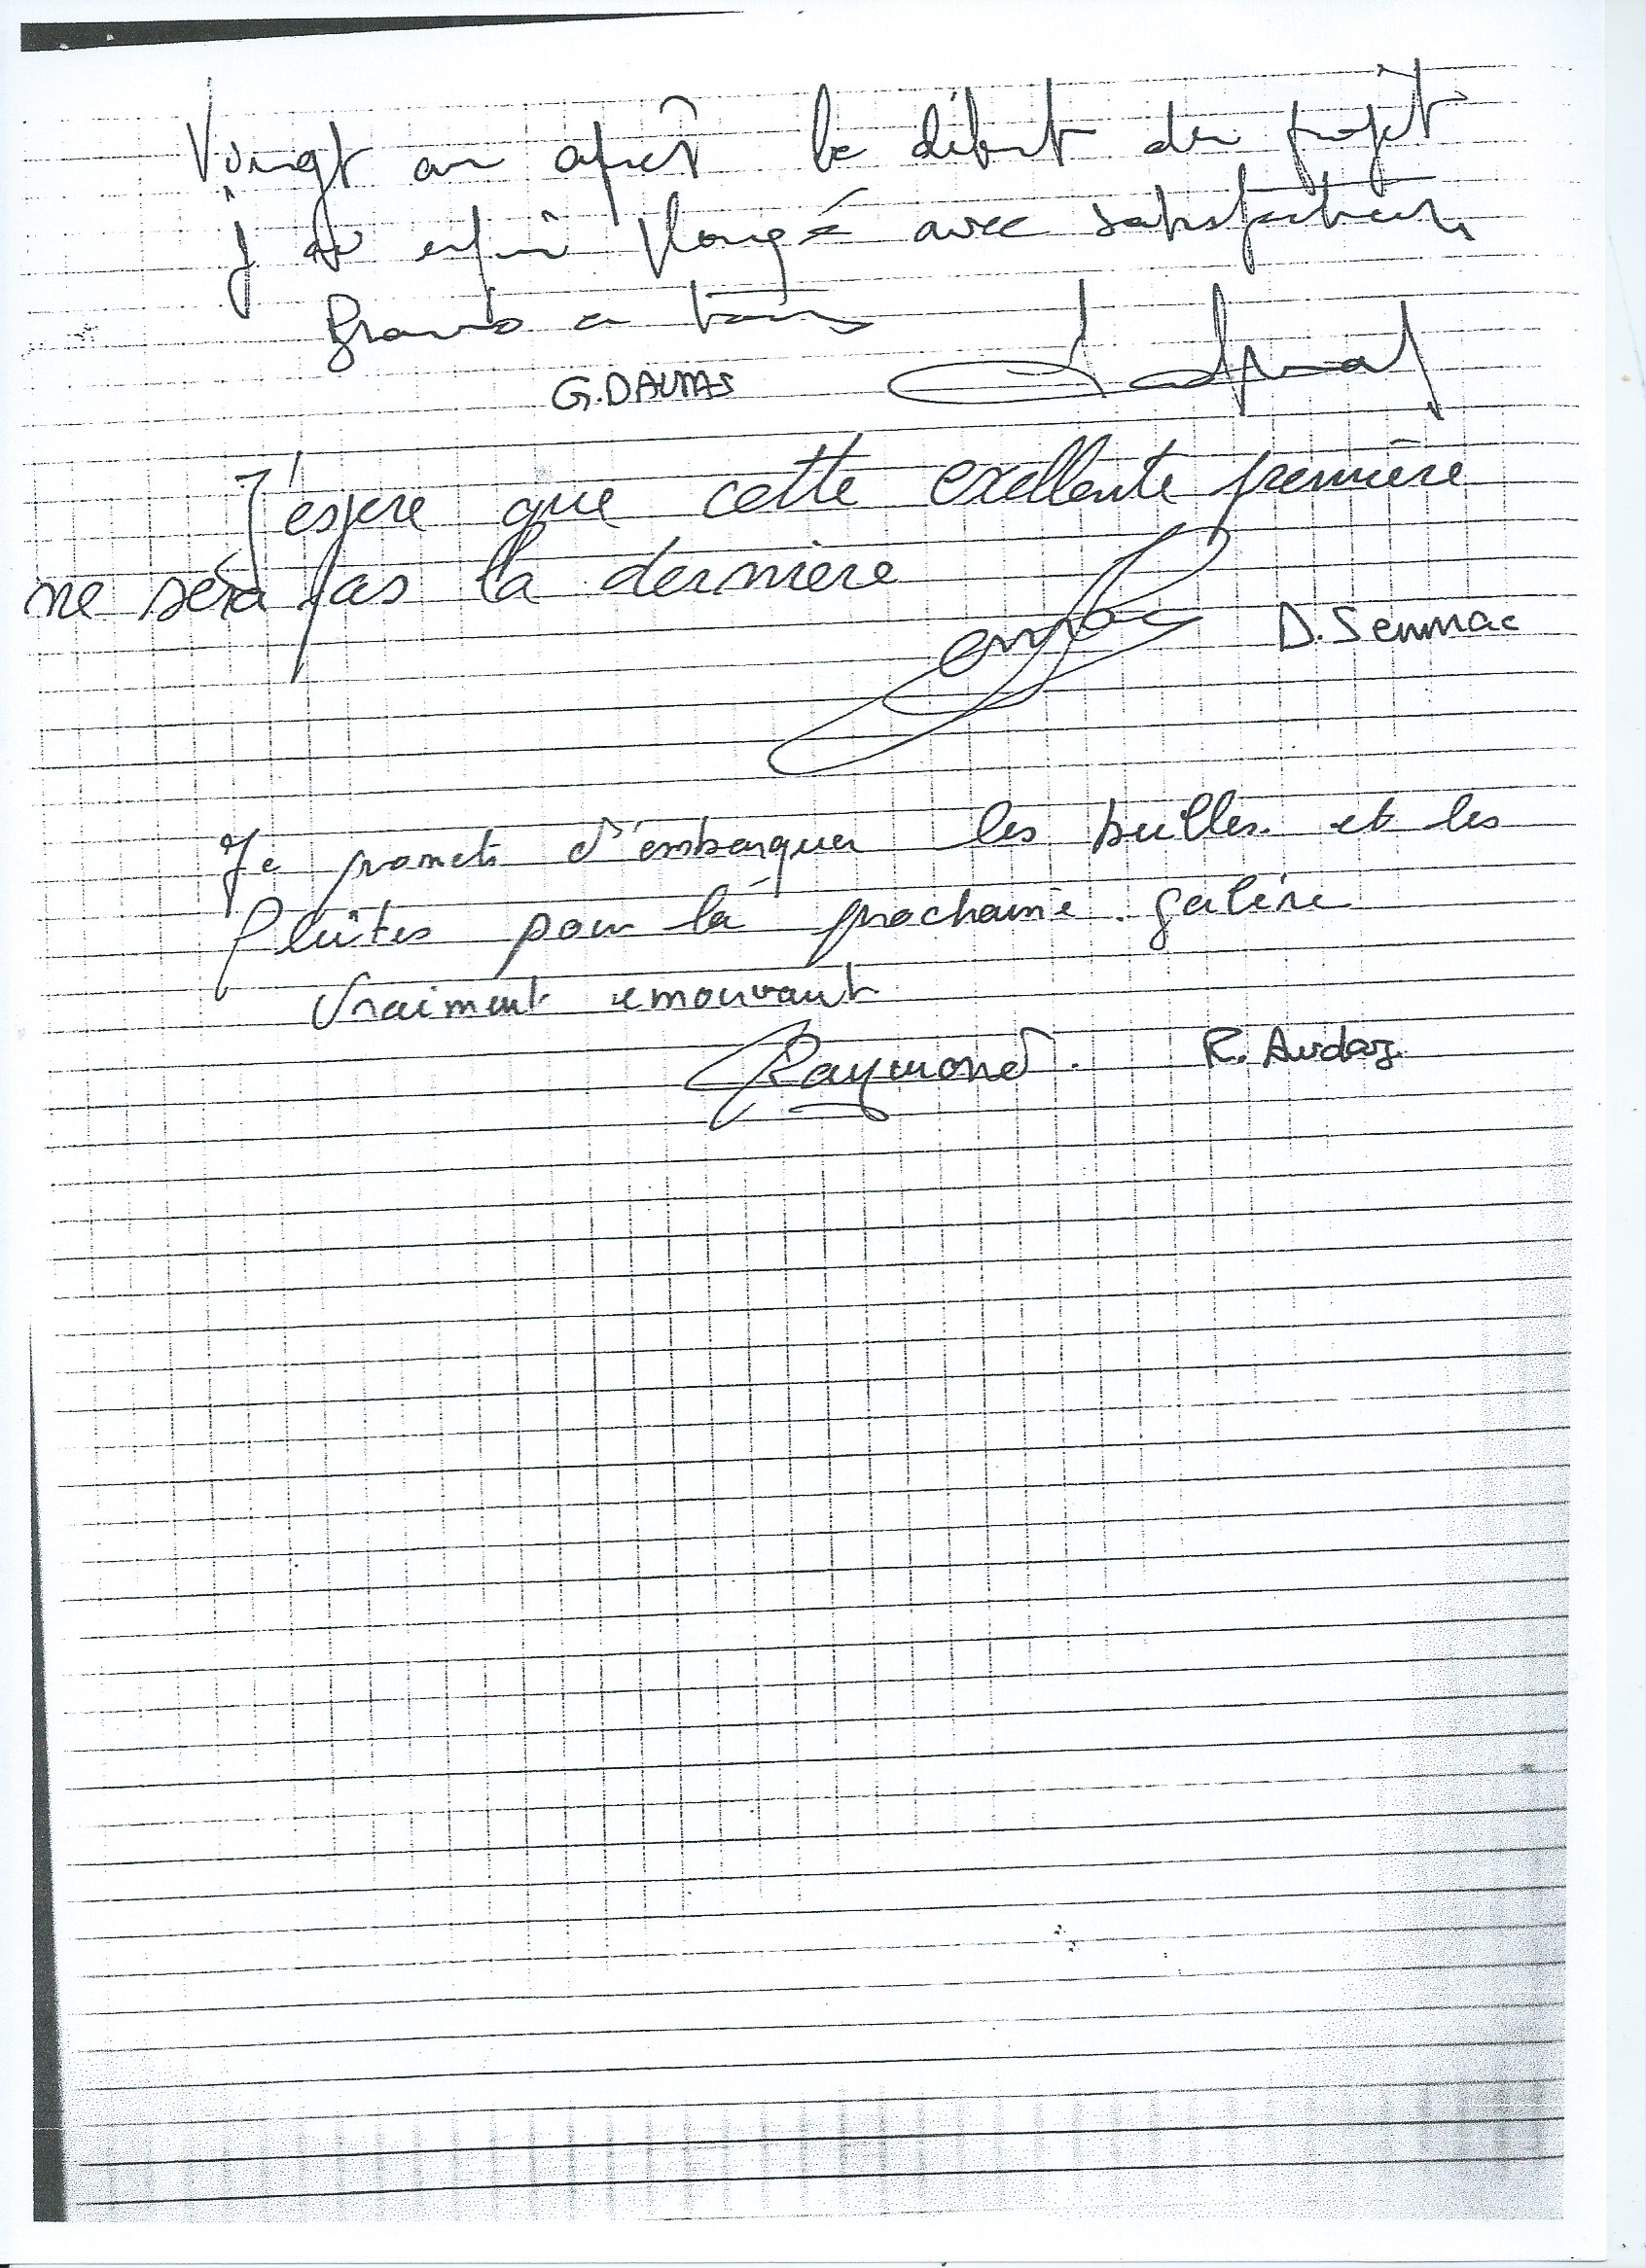 Vingt an après le début du projet
j ai enfin plongé avec satisfaction
Bravo a tous
G. DAUMAS
J'espere que cette exellente première
ne sera pas la derniere
D. Senmac
Je promets d'embarquer les bulles et les
flûtes pour la prochaine galère
Vraiment emouvant
Raymond. R. Audaz.